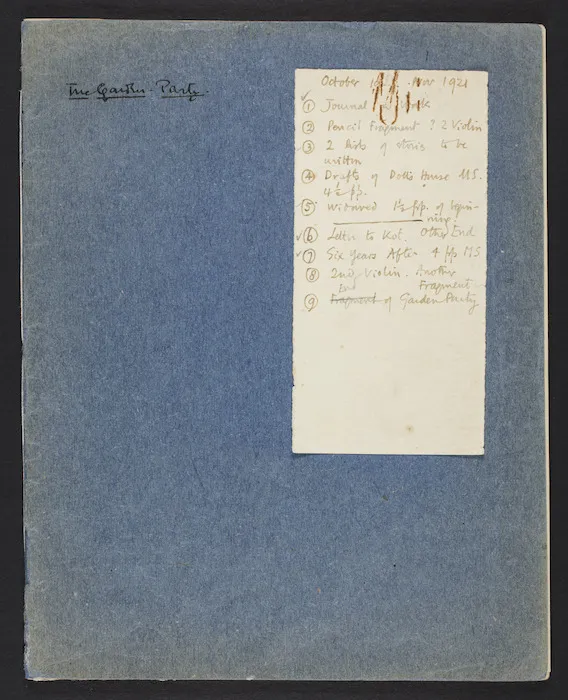 The Garden-Party.
October Nov 1921
① Journal
② Pencil Fragment ? 2 Violin
③ 2 lists of stories to be
written
④ Drafts of Dolls House MS.
4½ pp.
⑤ Widowed 1½ pp. of begin-
ning.
✓⑥ Letter to Kot. Other End
✓⑦ Six Years After 4 pp MS
⑧ 2nd Violin. Another
Fragment
End
⑨ Fragment of Garden Party